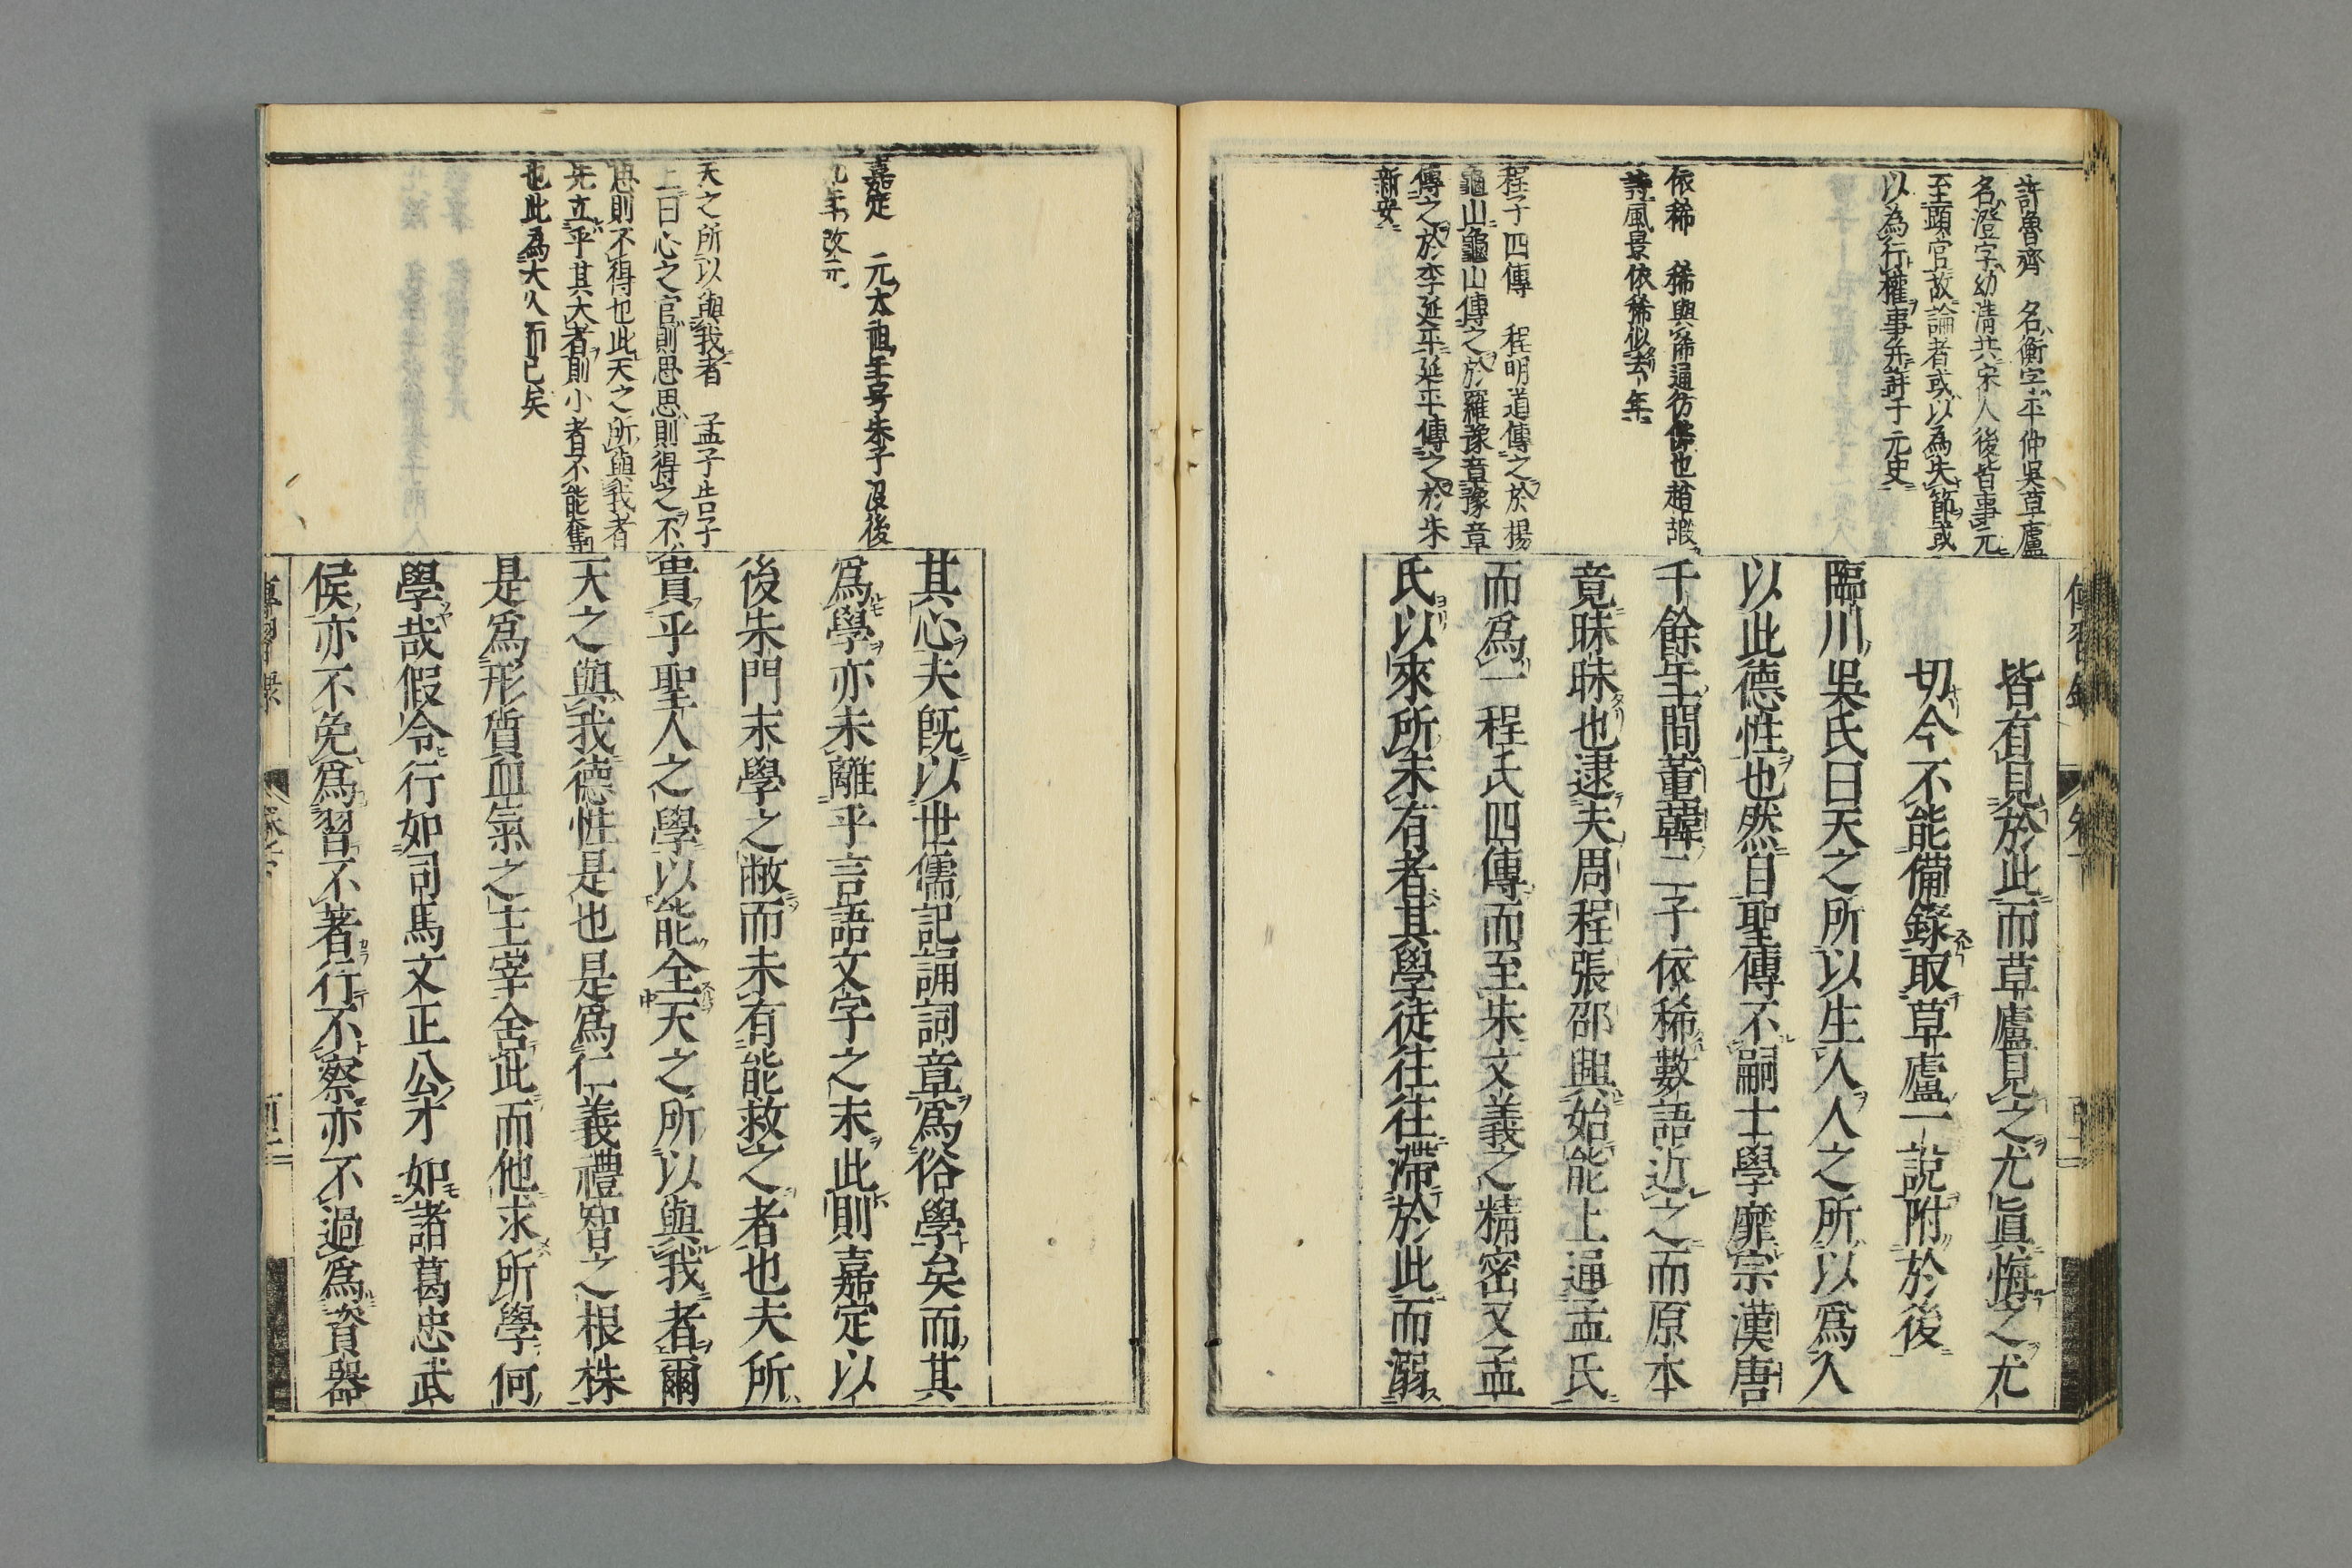 許魯齊　名衡字平仲吳草廬
名澄字幼清共宋人後皆事元
至顕官故論者或以為失節或
以為行權事并詳于元史
依稀　稀與俙通彷彿也趙嘏
詩風景依稀似去年
程子四傳　程明道傳之於揚
龜山龜山傳之於羅豫章豫章
傳之於李延平延平傳之於朱
新安
皆有見於此而草廬見之尤眞悔之尤
切今不能備錄取草廬一說附於後
臨川吳氏曰天之所以生人人之所以爲人
以此德性也然自聖傳不嗣士學靡宗漢唐
千餘年間董韓二子依稀數語近之而原本
竟昧昧也逮夫周程張邵興始能上通孟氏
而爲一程氏四傳而至朱文義之精密又孟
氏以來所未有者其學徒往往滯於此而溺
嘉定　元太祖王号朱子沒後
九年改元
天之所以與我者　孟子告子
上曰心之官則思思則得之不
思則不得也此天之所與我者
先立乎其大者則小者不能奪
也此為大人而已矣
其心夫旣以世儒記誦詞章爲俗學矣而其
爲學亦未離乎言語文字之末此則嘉定以
後朱門末學之敝而未有能救之者也夫所
貴乎聖人之學以能全天之所以與我者爾
天之與我德性是也是爲仁義禮智之根株
是爲形質血氣之主宰舍此而他求所學何
學哉假令行如司馬文正公才如諸葛忠武
侯亦不免爲習不著行不察亦不過爲資器